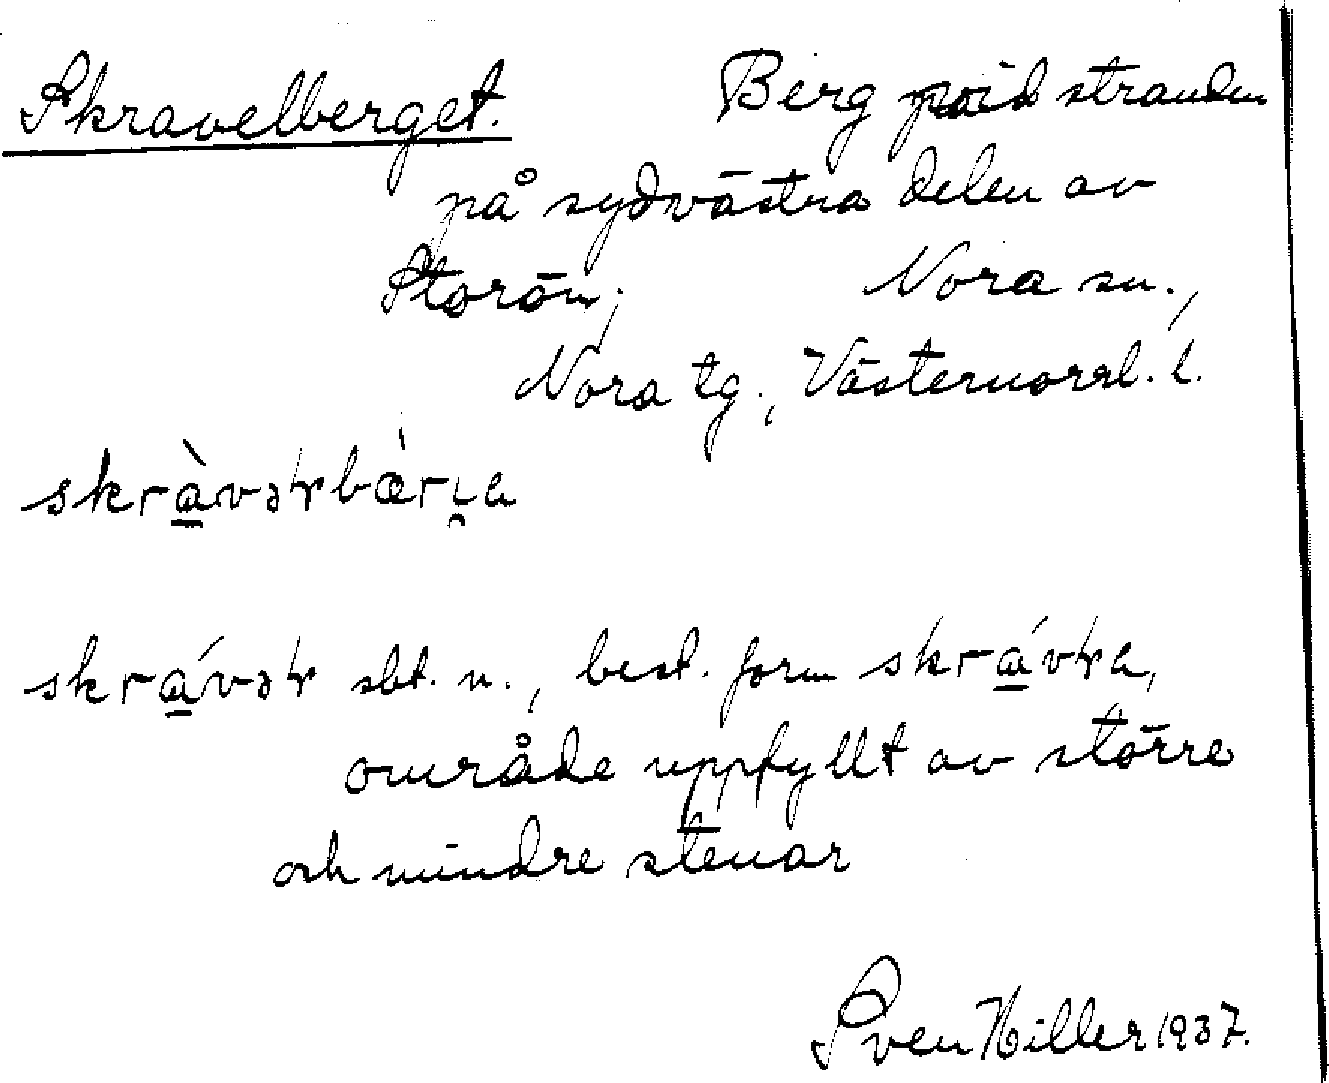 Skravelberget. Berg vid stranden
på sydvästra delen av
Storön; Nora sn.,
Nora tg., Västernorrl. l.
skràvəɽbæ̀rɪ̯a
skrávəɽ sbt. n., best. form skrávɽa,
område uppfyllt av större
och mindre stenar
Sven Hiller 1937.